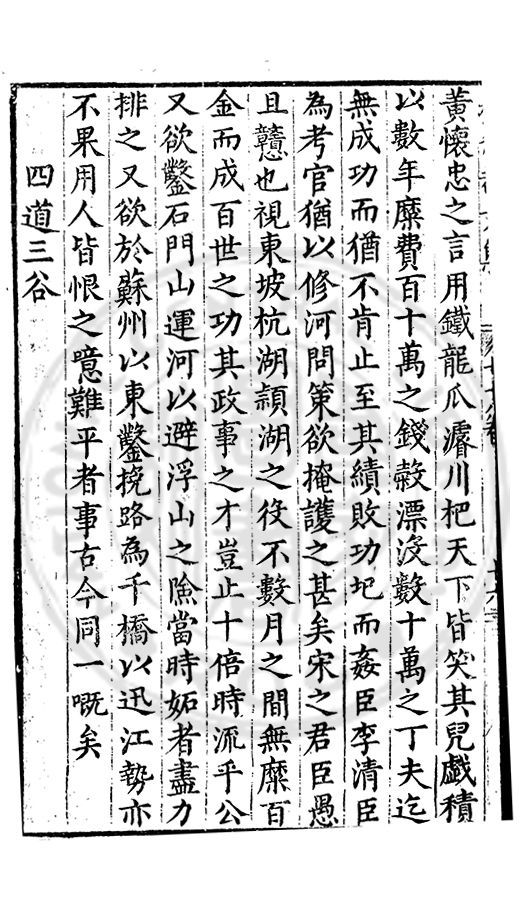 黃懷忠之言用鐵龍爪濬川杷天下皆笑其兒戲積
以數年糜費百十萬之錢榖漂沒數十萬之丁夫迄
無成功而猶不肯止至其績敗功圯而姦臣李清臣
為考官猶以修河問策欲掩護之甚矣宋之君臣愚
且戇也視東坡杭湖頴湖之役不數月之間無糜百
金而成百世之功其政事之才豈止十倍時流乎公
又欲鑿石門山運河以避浮山之險當時妬者盡力
排之又欲於蘇州以東鑿挽路為千橋以迅江勢亦
不果用人皆恨之噫難平者事古今同一嘅矣
四道三谷